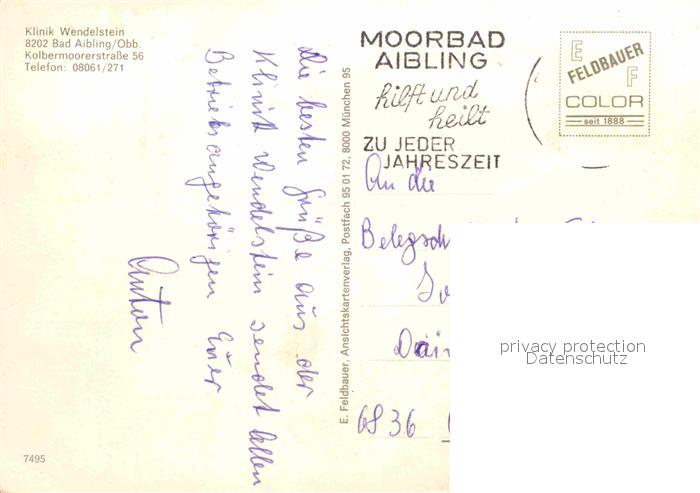 Klinik Wendelstein
8202 Bad Aibling/Obb.
Kolbermoorerstraße 56
Telefon: 08061/271
Die besten Grüße aus der
Klinik Wendelstein sendet Allen
Betriebsangehörigen Euer
Anton
7495
E. Feldbauer, Ansichtskartenverlag, Postfach 95 01 72, 8000 München 95
MOORBAD
AIBLING
hilft und
heilt
ZU JEDER
JAHRESZEIT
E
FELDBAUER
F
COLOR
seit 1888
An die
Belegsch
6836
privacy protection
Datenschutz